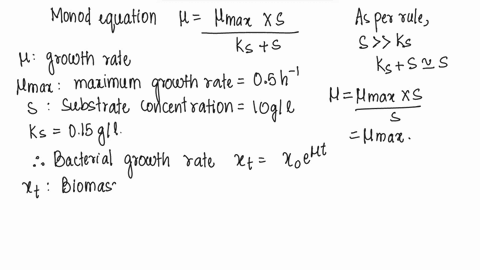 Monod equation μ = μmax × S / Ks + S
μ: growth rate
μmax: maximum growth rate = 0.5 h⁻¹
S : Substrate concentration = 10g/l
Ks = 0.15 g/l.
∴ Bacterial growth rate xt = x₀e^μt
xt : Biomas
As per rule,
S >> Ks
Ks + S ≃ S
μ = μmax × S / S
= μmax.